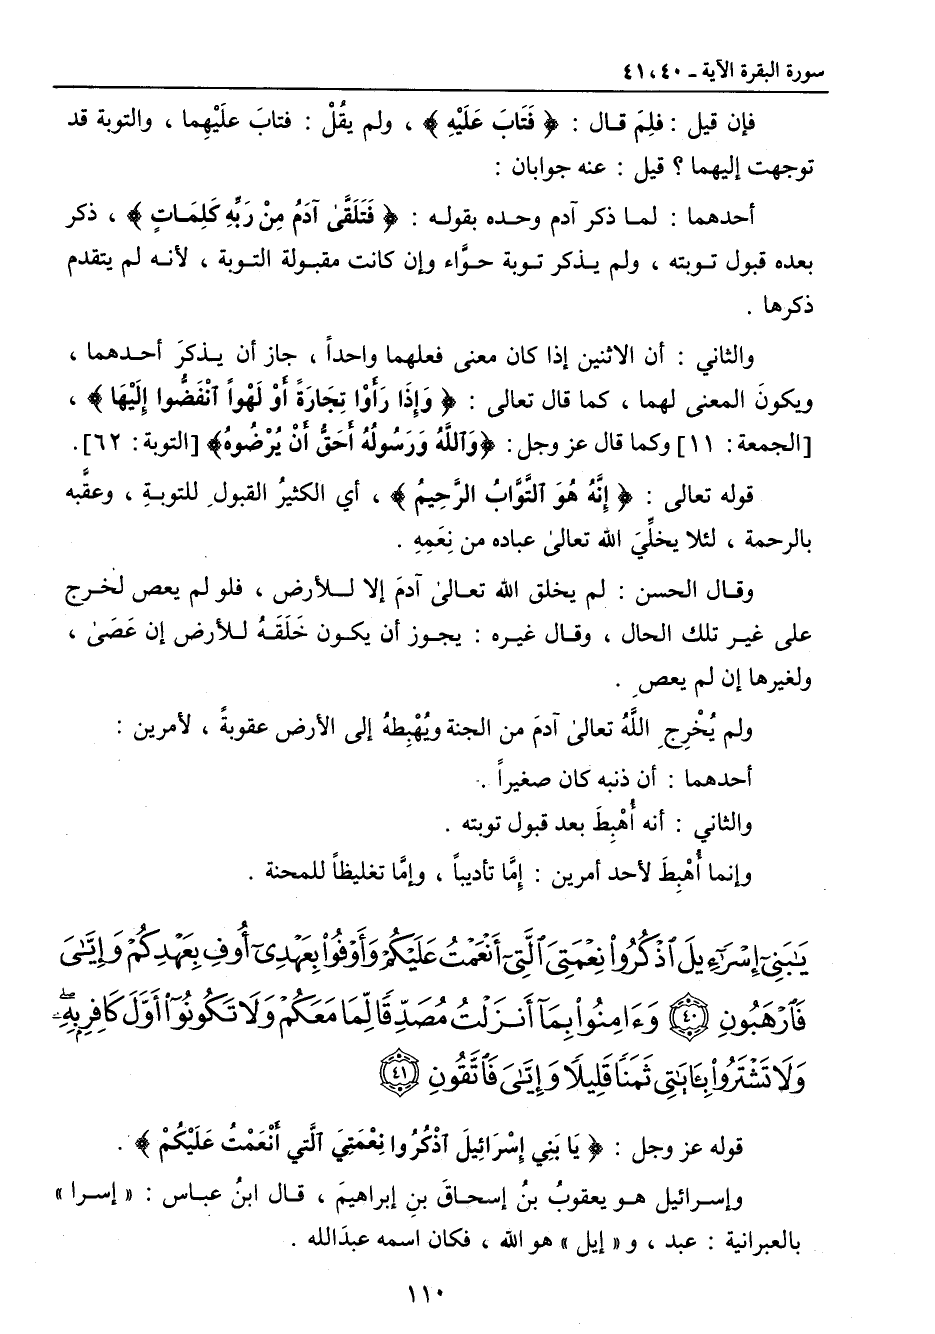 سورة البقرة الآية ـ ٤٠ ، ٤١
فإن قيل : فلِمَ قـال : ﴿ فَتَابَ عَلَيْهِ ﴾ ، ولم يقُلْ : فتابَ علَيْهِما ، والتوبة قد
توجهت إليهما ؟ قيل : عنه جوابان :
أحدهما : لمـا ذكر آدم وحـده بقولـه : ﴿ فَتَلَقَّىٰ آدَمُ مِنْ رَبِّهِ كَلِمَـاتٍ ﴾ ، ذكر
بعده قبول تـوبته ، ولم يـذكر تـوبة حـوَّاء وإن كانت مقبـولة التـوبة ، لأنـه لم يتقدم
ذكرها .
والثاني : أن الاثنين إذا كان معنى فعلهما واحداً ، جاز أن يـذكرَ أحـدهما ،
ويكونَ المعنى لهما ، كما قال تعالى : ﴿ وَإِذَا رَأَوْا تِجَارَةً أَوْ لَهْواً ٱنْفَضُّوا إِلَيْهَا ﴾ ،
[الجمعة : ١١] وكما قال عز وجل : ﴿وَٱللَّهُ وَرَسُولُهُ أَحَقُّ أَنْ يُرْضُوهُ﴾ [التوبة : ٦٢].
قوله تعالى : ﴿ إِنَّهُ هُوَ ٱلتَّوَّابُ الرَّحِيمُ ﴾ ، أي الكثيرُ القبولِ للتوبةِ ، وعقَّبه
بالرحمة ، لئلا يخلِّيَ الله تعالىٰ عباده من نِعَمِهِ .
وقـال الحسن : لم يخلق الله تعـالىٰ آدمَ إلا لـلأرض ، فلو لم يعص لخـرج
على غيـر تلك الحال ، وقـال غيـره : يجـوز أن يكـون خَلَقَـهُ لـلأرض إن عَصَىٰ ،
ولغيرها إن لم يعصِ .
ولم يُخْرِجِ اللَّهُ تعالىٰ آدمَ من الجنة ويُهْبِطهُ إلى الأرض عقوبةً ، لأمرين :
أحدهما : أن ذنبه كان صغيراً .
والثاني : أنه أُهْبِطَ بعد قبول توبته .
وإنما أُهْبِطَ لأحد أمرين : إمَّا تأديباً ، وإمَّا تغليظاً للمحنة .
يَـٰبَنِىٓ إِسْرَٰٓءِيلَ ٱذْكُرُوا۟ نِعْمَتِىَ ٱلَّتِىٓ أَنْعَمْتُ عَلَيْكُمْ وَأَوْفُوا۟ بِعَهْدِىٓ أُوفِ بِعَهْدِكُمْ وَإِيَّـٰىَ
فَٱرْهَبُونِ ﴿٤٠﴾ وَءَامِنُوا۟ بِمَآ أَنزَلْتُ مُصَدِّقًا لِّمَا مَعَكُمْ وَلَا تَكُونُوٓا۟ أَوَّلَ كَافِرِۭ بِهِۦ ۖ
وَلَا تَشْتَرُوا۟ بِـَٔايَـٰتِى ثَمَنًا قَلِيلًا وَإِيَّـٰىَ فَٱتَّقُونِ ﴿٤١﴾
قوله عز وجل : ﴿ يَا بَنِي إِسْرَائِيلَ ٱذْكُرُوا نِعْمَتِيَ ٱلَّتي أَنْعَمْتُ عَلَيْكُمْ ﴾ .
وإسـرائيل هـو يعقوبُ بنُ إسحـاقَ بنِ إبراهيمَ ، قـال ابنُ عبـاس : « إسرا »
بالعبرانية : عبد ، و« إيل » هو الله ، فكان اسمه عبدَالله .
١١٠